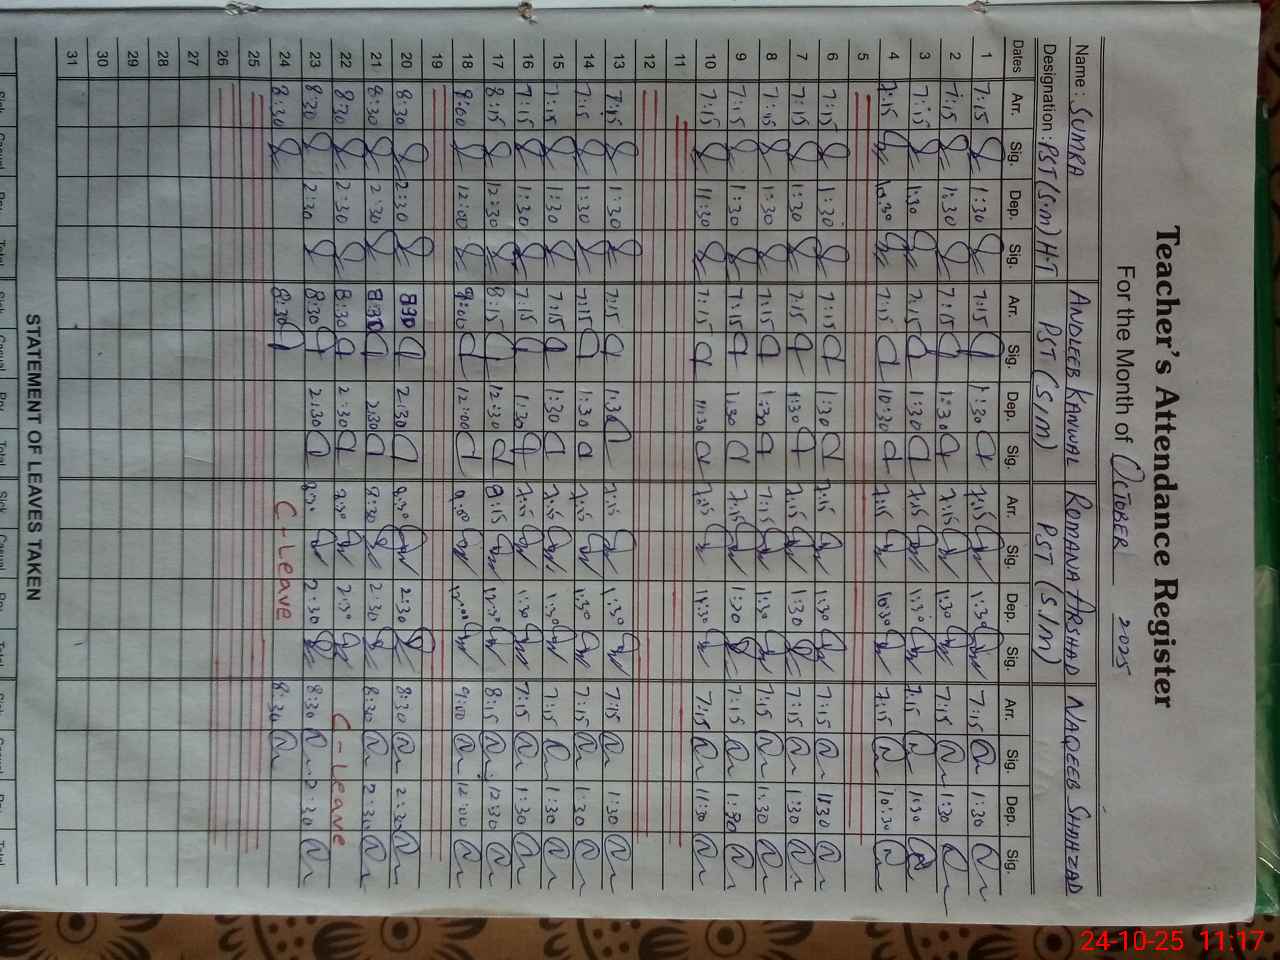 Teacher's Attendance Register
For the Month of OCTOBER 2025
Name: SUMRA ANDLEEB KANWAL ROMANA ARSHAD NAQEEB SHAHZAD
Designation: PST (S.M) H.T PST (S/M) PST (S/M)
Dates Arr. Sig. Dep. Sig. Arr. Sig. Dep. Sig. Arr. Sig. Dep. Sig. Arr. Sig. Dep. Sig.
1 7:15 1:30 7:15 1:30 7:15 1:30 7:15 1:30
2 7:15 1:30 7:15 1:30 7:15 1:30 7:15 1:30
3 7:15 1:30 7:15 1:30 7:15 1:30 7:15 1:30
4 7:15 10:30 7:15 10:30 7:15 10:30 7:15 10:30
5
6 7:15 1:30 7:15 1:30 7:15 1:30 7:15 1:30
7 7:15 1:30 7:15 1:30 7:15 1:30 7:15 1:30
8 7:15 1:30 7:15 1:30 7:15 1:30 7:15 1:30
9 7:15 1:30 7:15 1:30 7:15 1:30 7:15 1:30
10 7:15 11:30 7:15 11:30 7:15 11:30 7:15 11:30
11
12
13 7:15 1:30 7:15 1:30 7:15 1:30 7:15 1:30
14 7:15 1:30 7:15 1:30 7:15 1:30 7:15 1:30
15 7:15 1:30 7:15 1:30 7:15 1:30 7:15 1:30
16 7:15 1:30 7:15 1:30 7:15 1:30 7:15 1:30
17 8:15 12:30 8:15 12:30 8:15 12:30 8:15 12:30
18 9:00 12:00 9:00 12:00 9:00 12:00 9:00 12:00
19
20 8:30 2:30 830 2:30 8:30 2:30 8:30 2:30
21 8:30 2:30 8:30 2:30 8:30 2:30 8:30 2:30
22 8:30 2:30 8:30 2:30 8:30 2:30 C-Leave
23 8:30 2:30 8:30 2:30 8:30 2:30 8:30 2:30
24 8:30 8:30 C-Leave 8:30
25
26
27
28
29
30
31
STATEMENT OF LEAVES TAKEN
Sick Casual Total Sick Casual Total Sick Casual Total Sick Casual Total
24-10-25 11:17